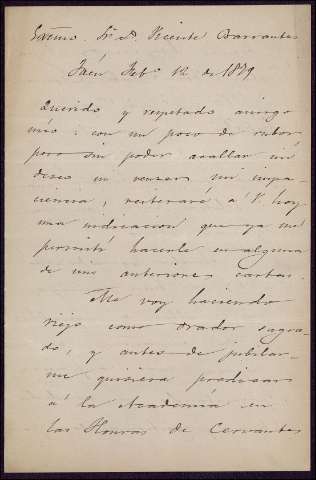 Excmo. Sr. D. Vicente Barrantes
Jaén Feb.º 12 de 1879
Querido y respetado amigo
mio: con un poco de rubor
pero sin poder acallar un
deseo ni vencer mi impa-
ciencia, reiteraré á V. hoy
una indicacion que ya me
permití hacerle en alguna
de mis anteriores cartas.
Me voy haciendo
viejo como orador sagra-
do, y antes de jubilar-
me quisiera predicar
á la Academia en
las Honras de Cervantes